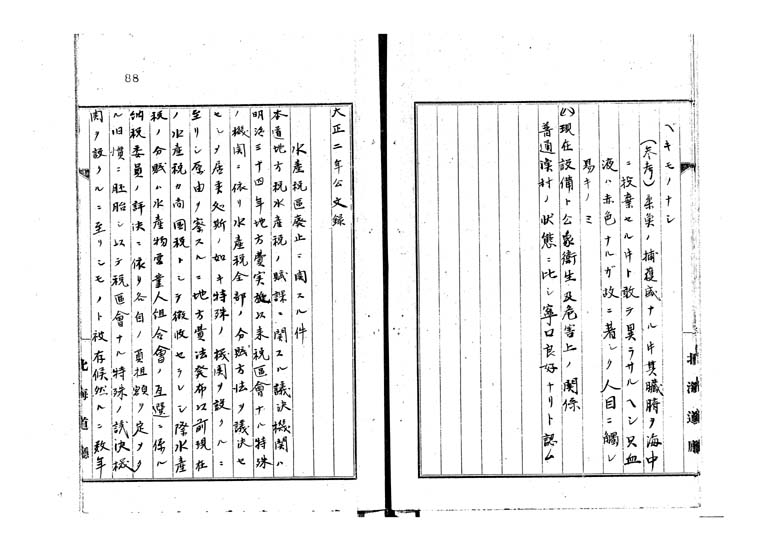 ベキモノナシ
(参考)柔魚ノ捕獲盛ナル時其臓腑ヲ海中
ニ投棄セルモノト敢テ異ラサルヘシ只血
液ハ赤色ナルガ故ニ著シク人目ニ觸レ
易キノミ
現在設備ト公衆衛生及危害上ノ関係
普通漁村ノ状態ニ比シ寧ロ良好ナリト認ム
北海道廳
88
大正二年公文録
水産税区廃止ニ関スル件
本道地方税水産税ノ賦課ニ関スル議決機関ハ
明治三十四年地方費実施以来税区會ナル特殊
ノ機関ニ依リ水産税全部ノ分賦方法ヲ議決セ
シメ居来候処斯ノ如キ特殊ノ機関ヲ設クルニ
至リシ原由ヲ察スルニ地方費法発布以前現在
ノ水産税カ尚国税トシテ徴收セラレシ際水産
税ノ分賦ハ水産物営業人組合會ノ互選ニ係ル
納税委員ノ評決ニ依リ各自ノ負担額ヲ定メタ
ル旧慣ニ胚胎シ以テ税區會ナル特殊ノ議決機
関ヲ設クルニ至リシモノト被存候然ルニ数年
北海道廳